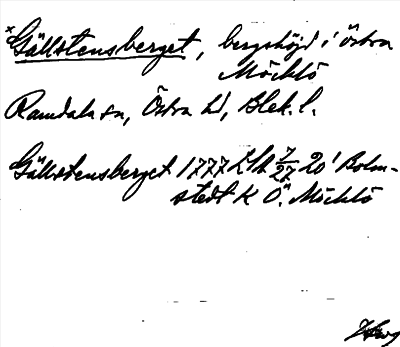 × Gällstensberget, bergshöjd i Östra
Möcklö
Ramdala sn, Östra hd, Blek. l.
Gällstensberget 1777 LSA 7/27 20' Bolm-
stedt K Ö. Möcklö